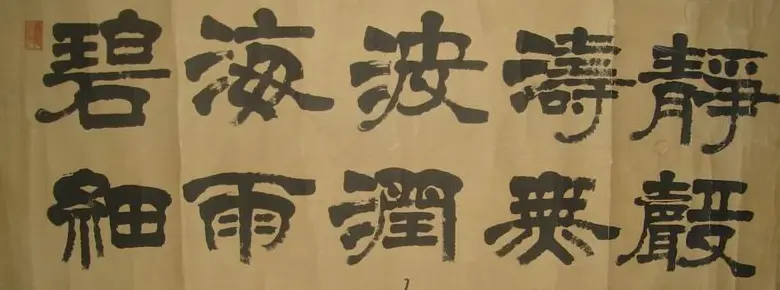 碧海波濤靜
細雨潤無聲